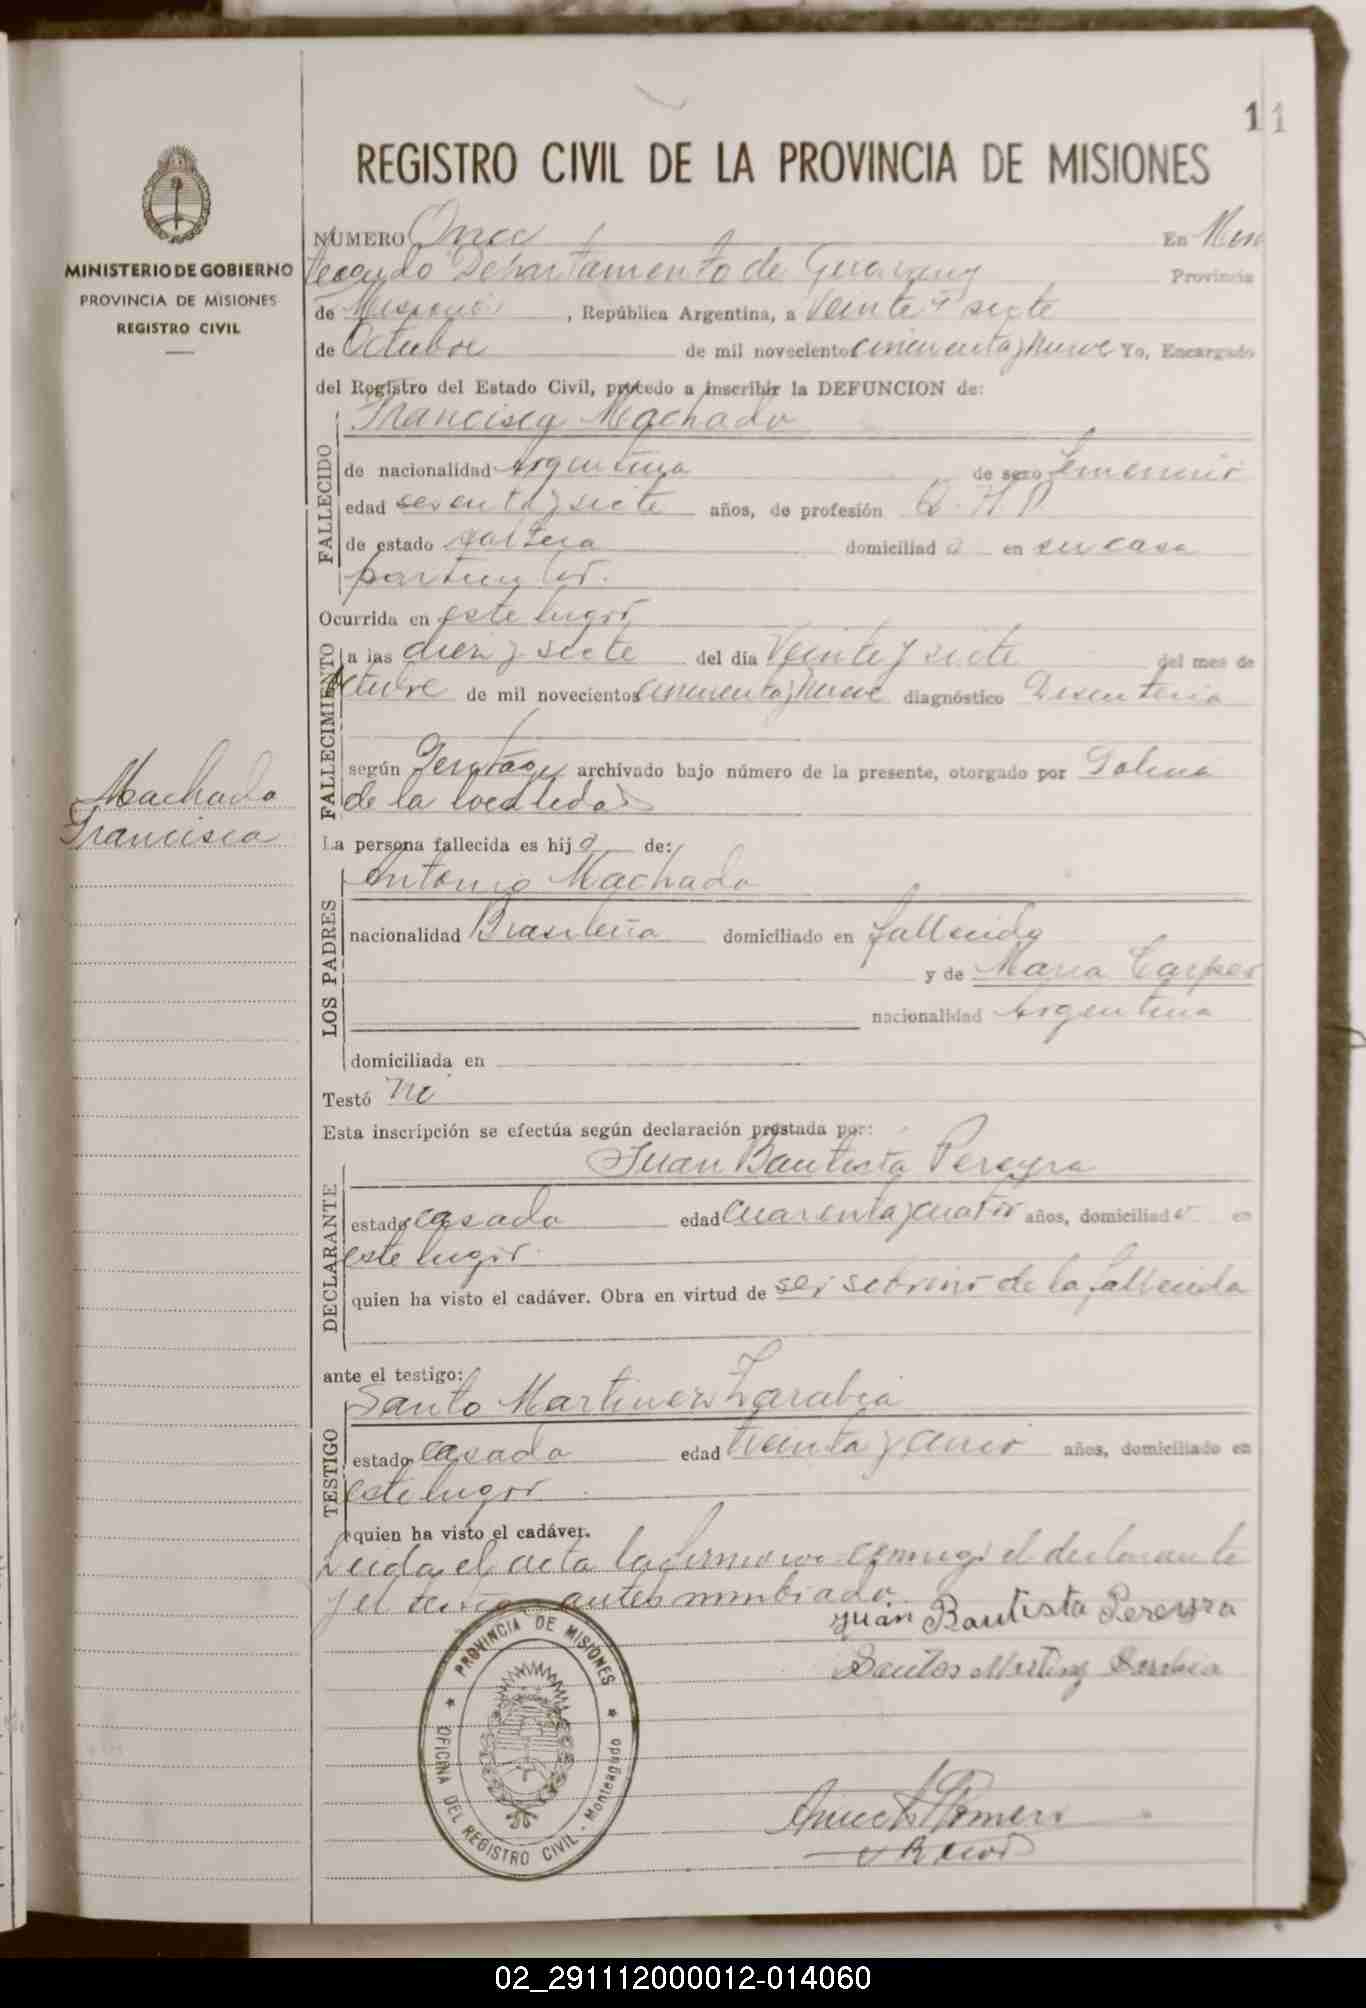 11
REGISTRO CIVIL DE LA PROVINCIA DE MISIONES
MINISTERIO DE GOBIERNO
PROVINCIA DE MISIONES
REGISTRO CIVIL
NÚMERO Once En Mon
teagudo Departamento de Guarany Provincia
de Misiones, República Argentina, a Veinte y siete
de Octubre de mil novecientos cincuenta y nueve Yo, Encargado
del Registro del Estado Civil, procedo a inscribir la DEFUNCION de:
Francisca Machado
FALLECIDO
de nacionalidad Argentina de sexo femenino
edad sesenta y siete años, de profesión Q. H. D.
de estado soltera domiciliad a en su casa
particular.
Ocurrida en este lugar
FALLECIMIENTO
a las diez y siete del día Veinte y siete del mes de
Octubre de mil novecientos cincuenta y nueve diagnóstico Disenteria
según archivado bajo número de la presente, otorgado por
de la localidad
Machado
Francisca
La persona fallecida es hij a de:
Antonio Machado
LOS PADRES
nacionalidad Brasileña domiciliado en fallecido
y de Maria
nacionalidad Argentina
domiciliada en
Testó no
Esta inscripción se efectúa según declaración prestada por:
Juan Bautista Pereyra
DECLARANTE
estado casado edad cuarenta y cuatro años, domiciliado en
este lugar.
quien ha visto el cadáver. Obra en virtud de ser sobrino de la fallecida
ante el testigo:
Santo Martinez Zarabia
TESTIGO
estado casado edad treinta y cinco años, domiciliado en
este lugar
quien ha visto el cadáver.
Leida el acta la firmaron conmigo el declarante
y el testigo antes nombrado.
Juan Bautista Pereyra
Santos Martinez Sarabia
PROVINCIA DE MISIONES
OFICINA DEL REGISTRO CIVIL - Monteagudo
02_291112000012-014060